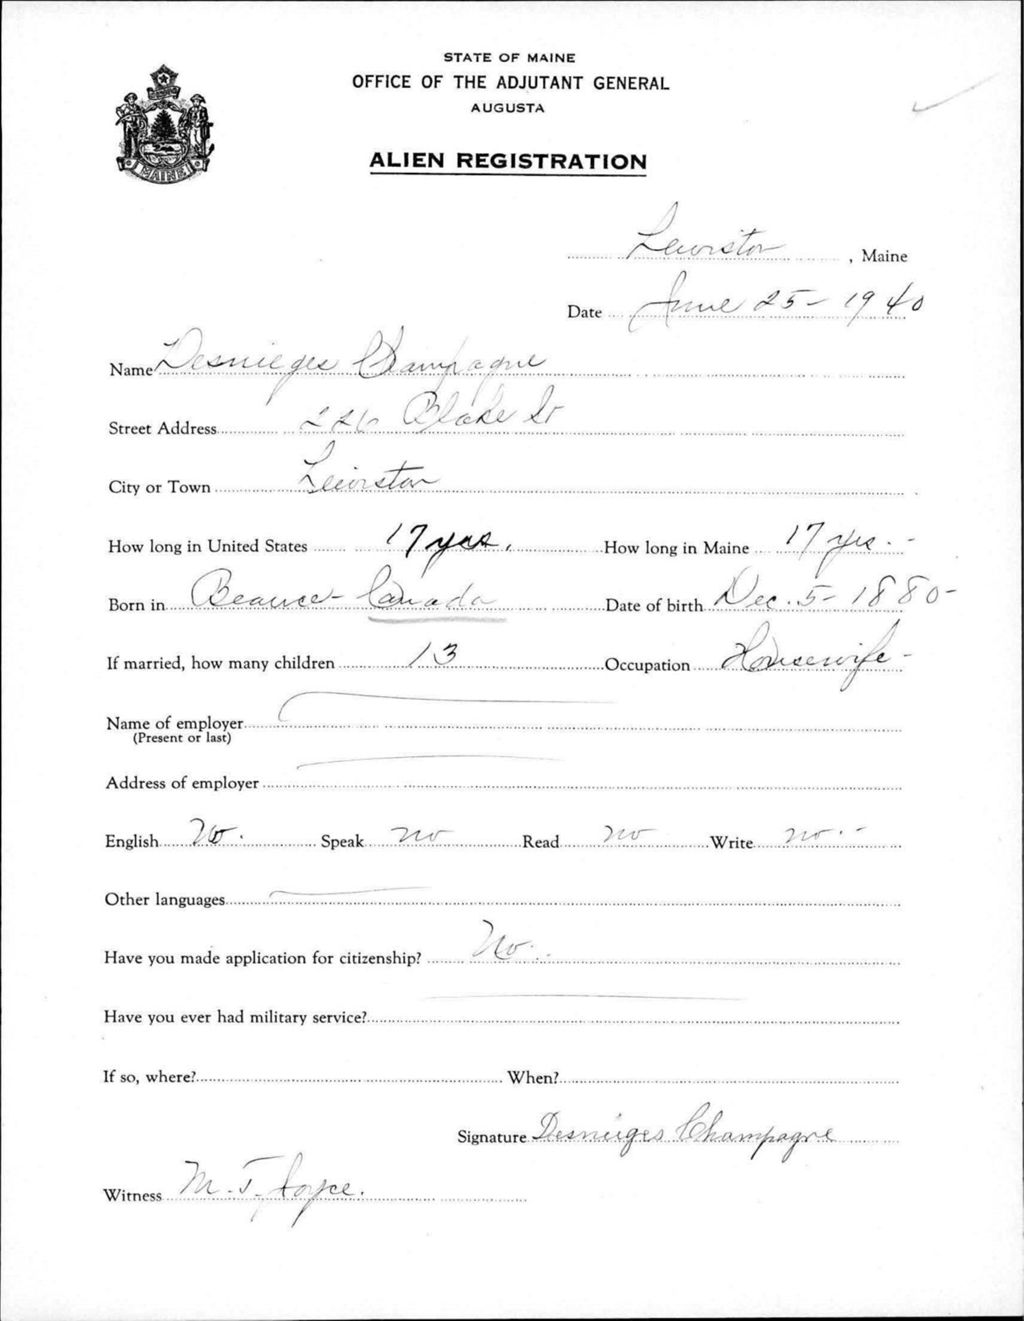 STATE OF MAINE
OFFICE OF THE ADJUTANT GENERAL
AUGUSTA
ALIEN REGISTRATION
MAINE
Lewiston, Maine
Date June 25 - 1940
Name Desnieges Champagne
Street Address 226 Blake St
City or Town Lewiston
How long in United States 17 yrs. How long in Maine 17 yrs. -
Born in Beauce - Canada Date of birth Dec. 5 - 1880 -
If married, how many children 13 Occupation Housewife -
Name of employer
(Present or last)
Address of employer
English No. Speak no Read no Write no. -
Other languages
Have you made application for citizenship? No.
Have you ever had military service?
If so, where? When?
Signature Desnieges Champagne
Witness M. T. Joyce.